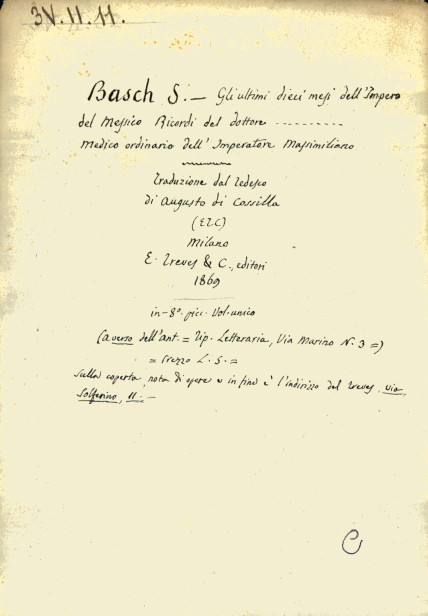 3V.II.11.
Basch S. — Gli ultimi dieci mesi dell'Impero
del Messico Ricordi del dottore ----------
medico ordinario dell'Imperatore Massimiliano
Traduzione dal Tedesco
di Augusto di Cossilla
(ETC)
Milano
E. Treves & C., editori
1869
in-8° picc. Vol. unico
(a verso dell'ant. = Tip. Letteraria, Via Marino N. 3 =)
= Prezzo L. 5. =
Sulla coperta, nota di opere e in fine è l'indirizzo del Treves, via
Solferino, 11. —
C